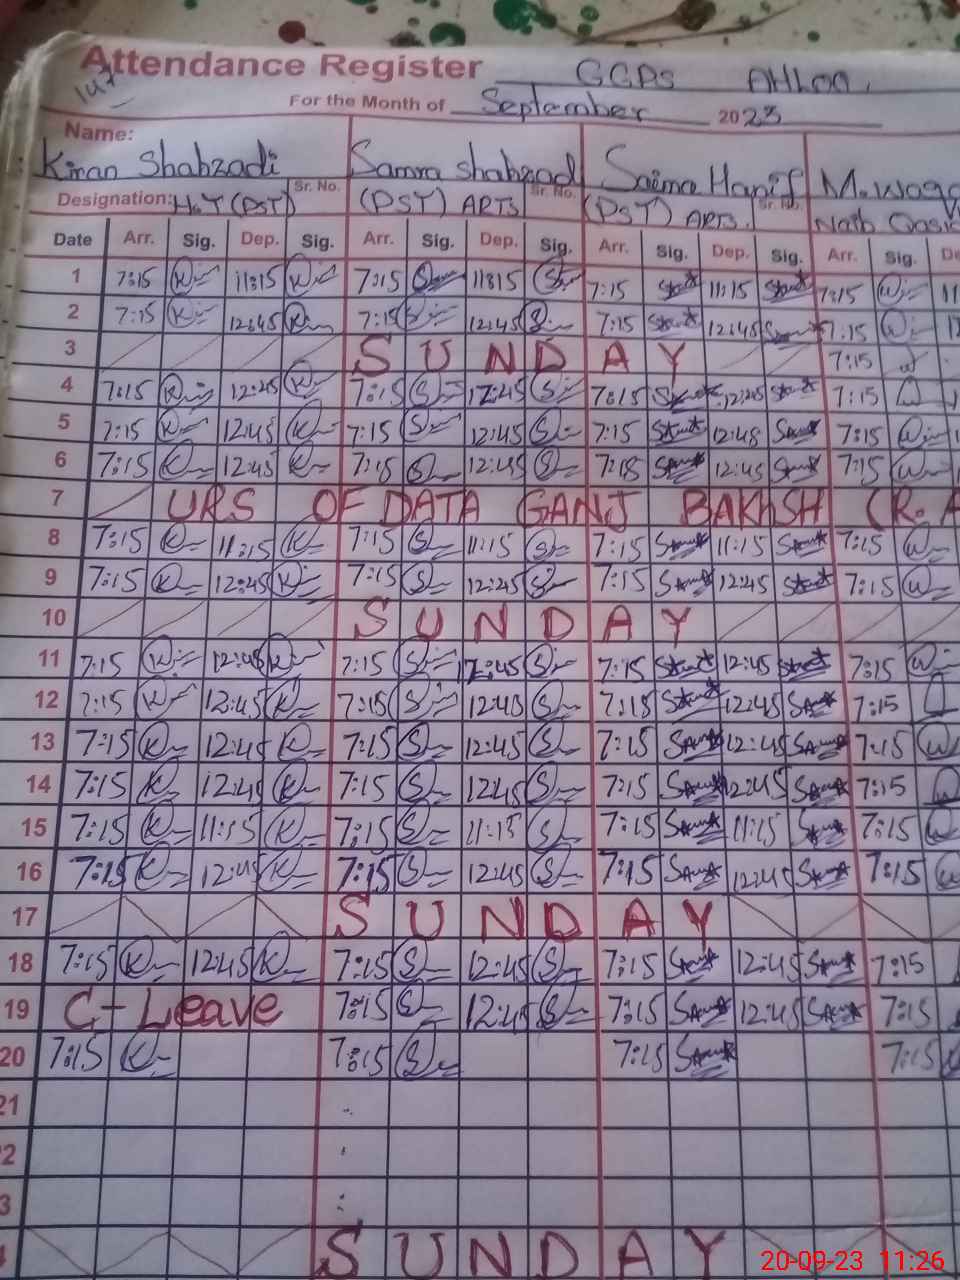 Attendance Register GGPS AHLOO.
For the Month of September 2023
Name:
Kiran Shahzadi Samra Shahzad Saima Hanif
Sr. No. Sr. No. Sr. No.
Designation: H.T (PST) (PST) ARTS (PST) ARTS. Naib Qasid
Date Arr. Sig. Dep. Sig. Arr. Sig. Dep. Sig. Arr. Sig. Dep. Sig. Arr. Sig.
1 7:15 K 11:15 K 7:15 S 11:15 S 7:15 11:15 7:15 W 11
2 7:15 K 12:45 K 7:15 S 12:45 S 7:15 12:45 7:15 W
3 SUNDAY 7:15 W
4 7:15 K 12:45 K 7:15 S 12:45 S 7:15 12:45 7:15 W
5 7:15 K 12:45 K 7:15 S 12:45 S 7:15 12:45 7:15 W
6 7:15 K 12:45 K 7:15 S 12:45 S 7:15 12:45 7:15 W
7 URS OF DATA GANJ BAKHSH (R.A
8 7:15 K 11:15 K 7:15 S 11:15 S 7:15 11:15 7:15 W
9 7:15 K 12:45 K 7:15 S 12:45 S 7:15 12:45 7:15 W
10 SUNDAY
11 7:15 K 12:45 K 7:15 S 12:45 S 7:15 12:45 7:15 W
12 7:15 K 12:45 K 7:15 S 12:45 S 7:15 12:45 7:15
13 7:15 K 12:45 K 7:15 S 12:45 S 7:15 12:45 7:15 W
14 7:15 K 12:45 K 7:15 S 12:45 S 7:15 12:45 7:15 W
15 7:15 K 11:15 K 7:15 S 11:15 S 7:15 11:15 7:15 W
16 7:15 K 12:45 K 7:15 S 12:45 S 7:15 12:45 7:15 W
17 SUNDAY
18 7:15 K 12:45 K 7:15 S 12:45 S 7:15 12:45 7:15
19 C-Leave 7:15 S 12:45 S 7:15 12:45 7:15
20 7:15 K 7:15 S 7:15 7:15
21
2
3
SUNDAY
20-09-23 11:26